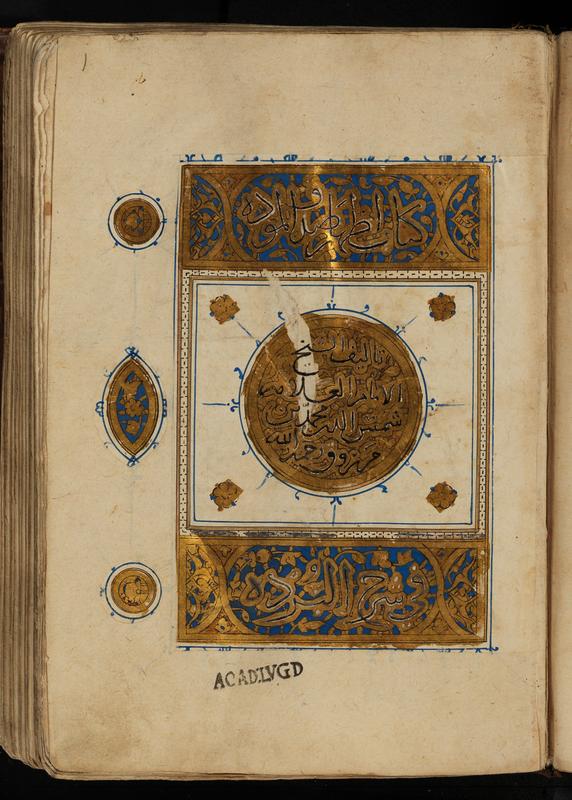 كتاب اظهار صدق المودة
تاليف الشيخ
الامام العلامة
شمس الدين محمد بن
مرزوق رحمه الله
في شرح البردة
ACAD.LVGD